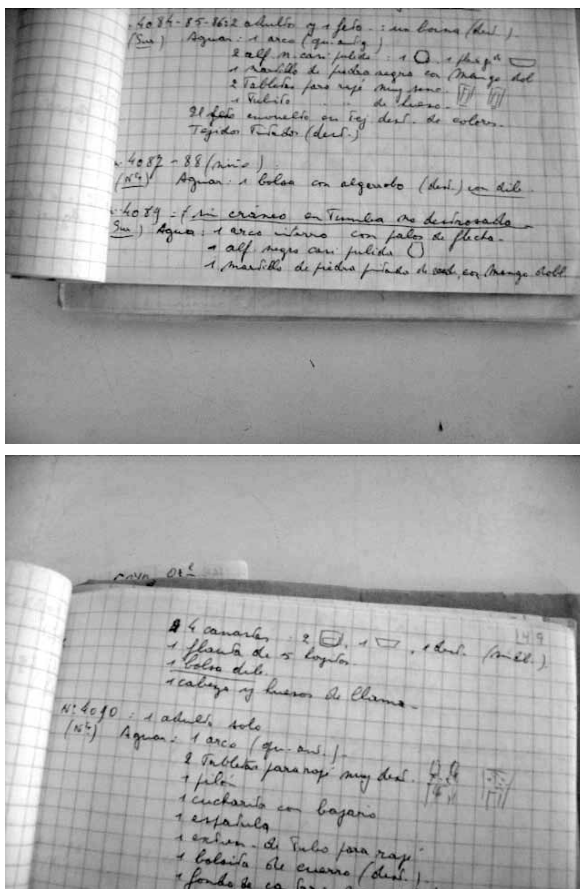 4084-85-86: 2 adultos y 1 feto : un borna (dest.).
(Sur) Aguar: 1 arco (qu. ant.)
2 alf. n. casi pulido : 1 , 1 
1 martillo de piedra negra con mango dobl
2 Tabletas para rapé muy 
1 Tubito " de hueso -
21 feto envuelto en Tej. dest. de colores.
Tejidos Pintados (dest.)
4087 - 88 (niño)
(N4) Aguar: 1 bolsa con algarrobo (dest.) con dib.
4089 = 1 sin cráneo en Tumba no destrozada -
Sur) Aguar: 1 arco entero con palos de flecha -
1 alf. negro casi pulido
1 martillo de piedra pintado de , con mango dobl.
149
4 canastos : 2 , 1 , 1 dest. (miel.)
1 flauta de 5 
1 bolsa dib.
1 cabeza y huesos de llama -
Nº 4090 : 1 adulto solo
(N4) Aguar: 1 arco (qu. ant.)
2 Tabletas para rapé muy dest.
1 pilón
1 cucharita con bagazo
1 espátula
1 extrem. de Tubo para rapé
1 bolsita de cuero (dest.)
1 fondo de